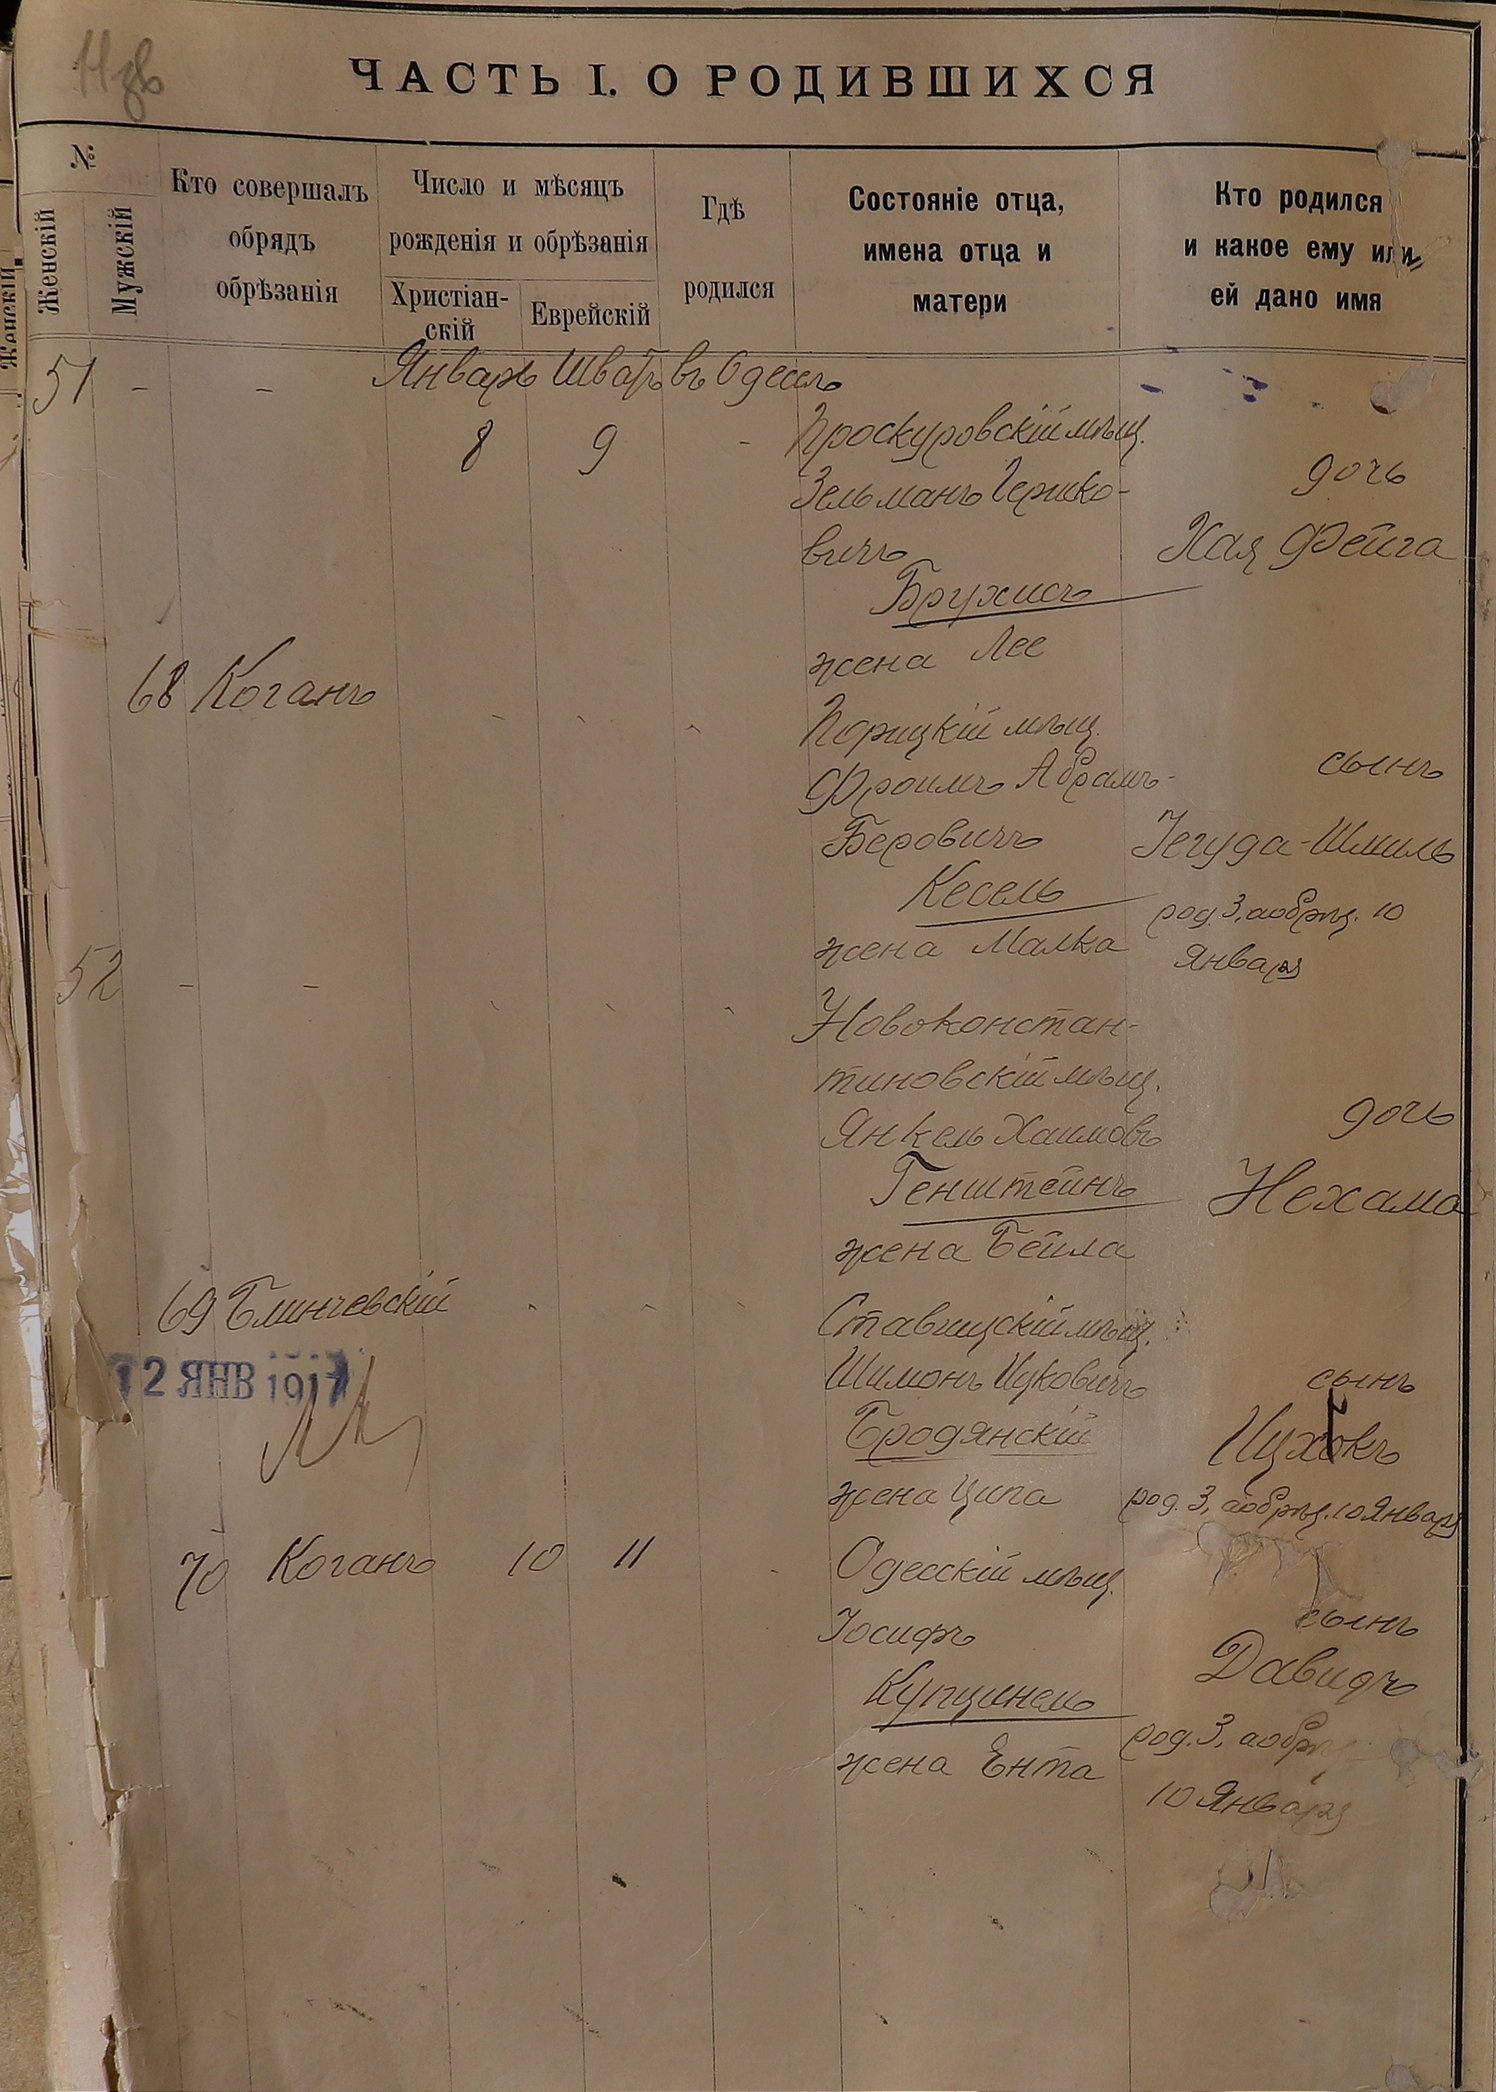 11 зв
ЧАСТЬ I. О РОДИВШИХСЯ
№
Женскій
Мужскій
Кто совершалъ
обрядъ
обрѣзанія
Число и мѣсяцъ
рожденія и обрѣзанія
Христіан-
скій
Еврейскій
Гдѣ
родился
Состояніе отца,
имена отца и
матери
Кто родился
и какое ему или
ей дано имя
Женскій
51 - - Январь Шватъ въ Одессѣ
8 9 - Проскуровскій мѣщ.
Зельманъ Гершко-
вичъ
Брухисъ
жена Лее
дочь
Хая Фейга
68 Коганъ
Порицкій мѣщ.
Фроимъ Абрамъ-
Беровичъ
Кесель
жена Малка
сынъ
Іегуда-Шмиль
род. 3, а обрѣз. 10
Января
52 - -
Новоконстан-
тиновскій мѣщ.
Янкель Хаимовъ
Генштейнъ
жена Бейла
дочь
Нехама
69 Блинчевскій
Ставищскій мѣщ.
Шимонъ Ицковичъ
Бродянскій
жена Ципа
сынъ
Ицхокъ
род. 3, а обрѣз. 10 Января
12 ЯНВ 1917
70 Коганъ 10 11 -
Одесскій мѣщ.
Іосифъ
Купцинель
жена Ента
сынъ
Давидъ
род. 3, а обрѣз
10 Января